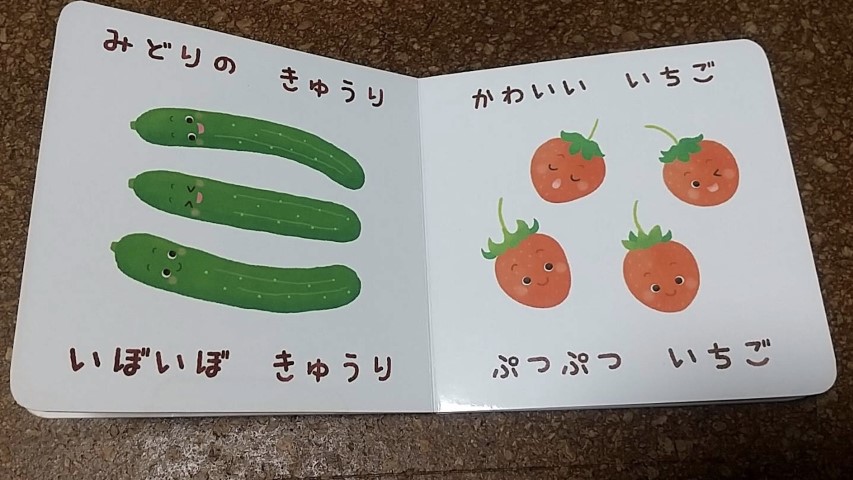 みどりの きゅうり
いぼいぼ きゅうり
かわいい いちご
ぷつぷつ いちご